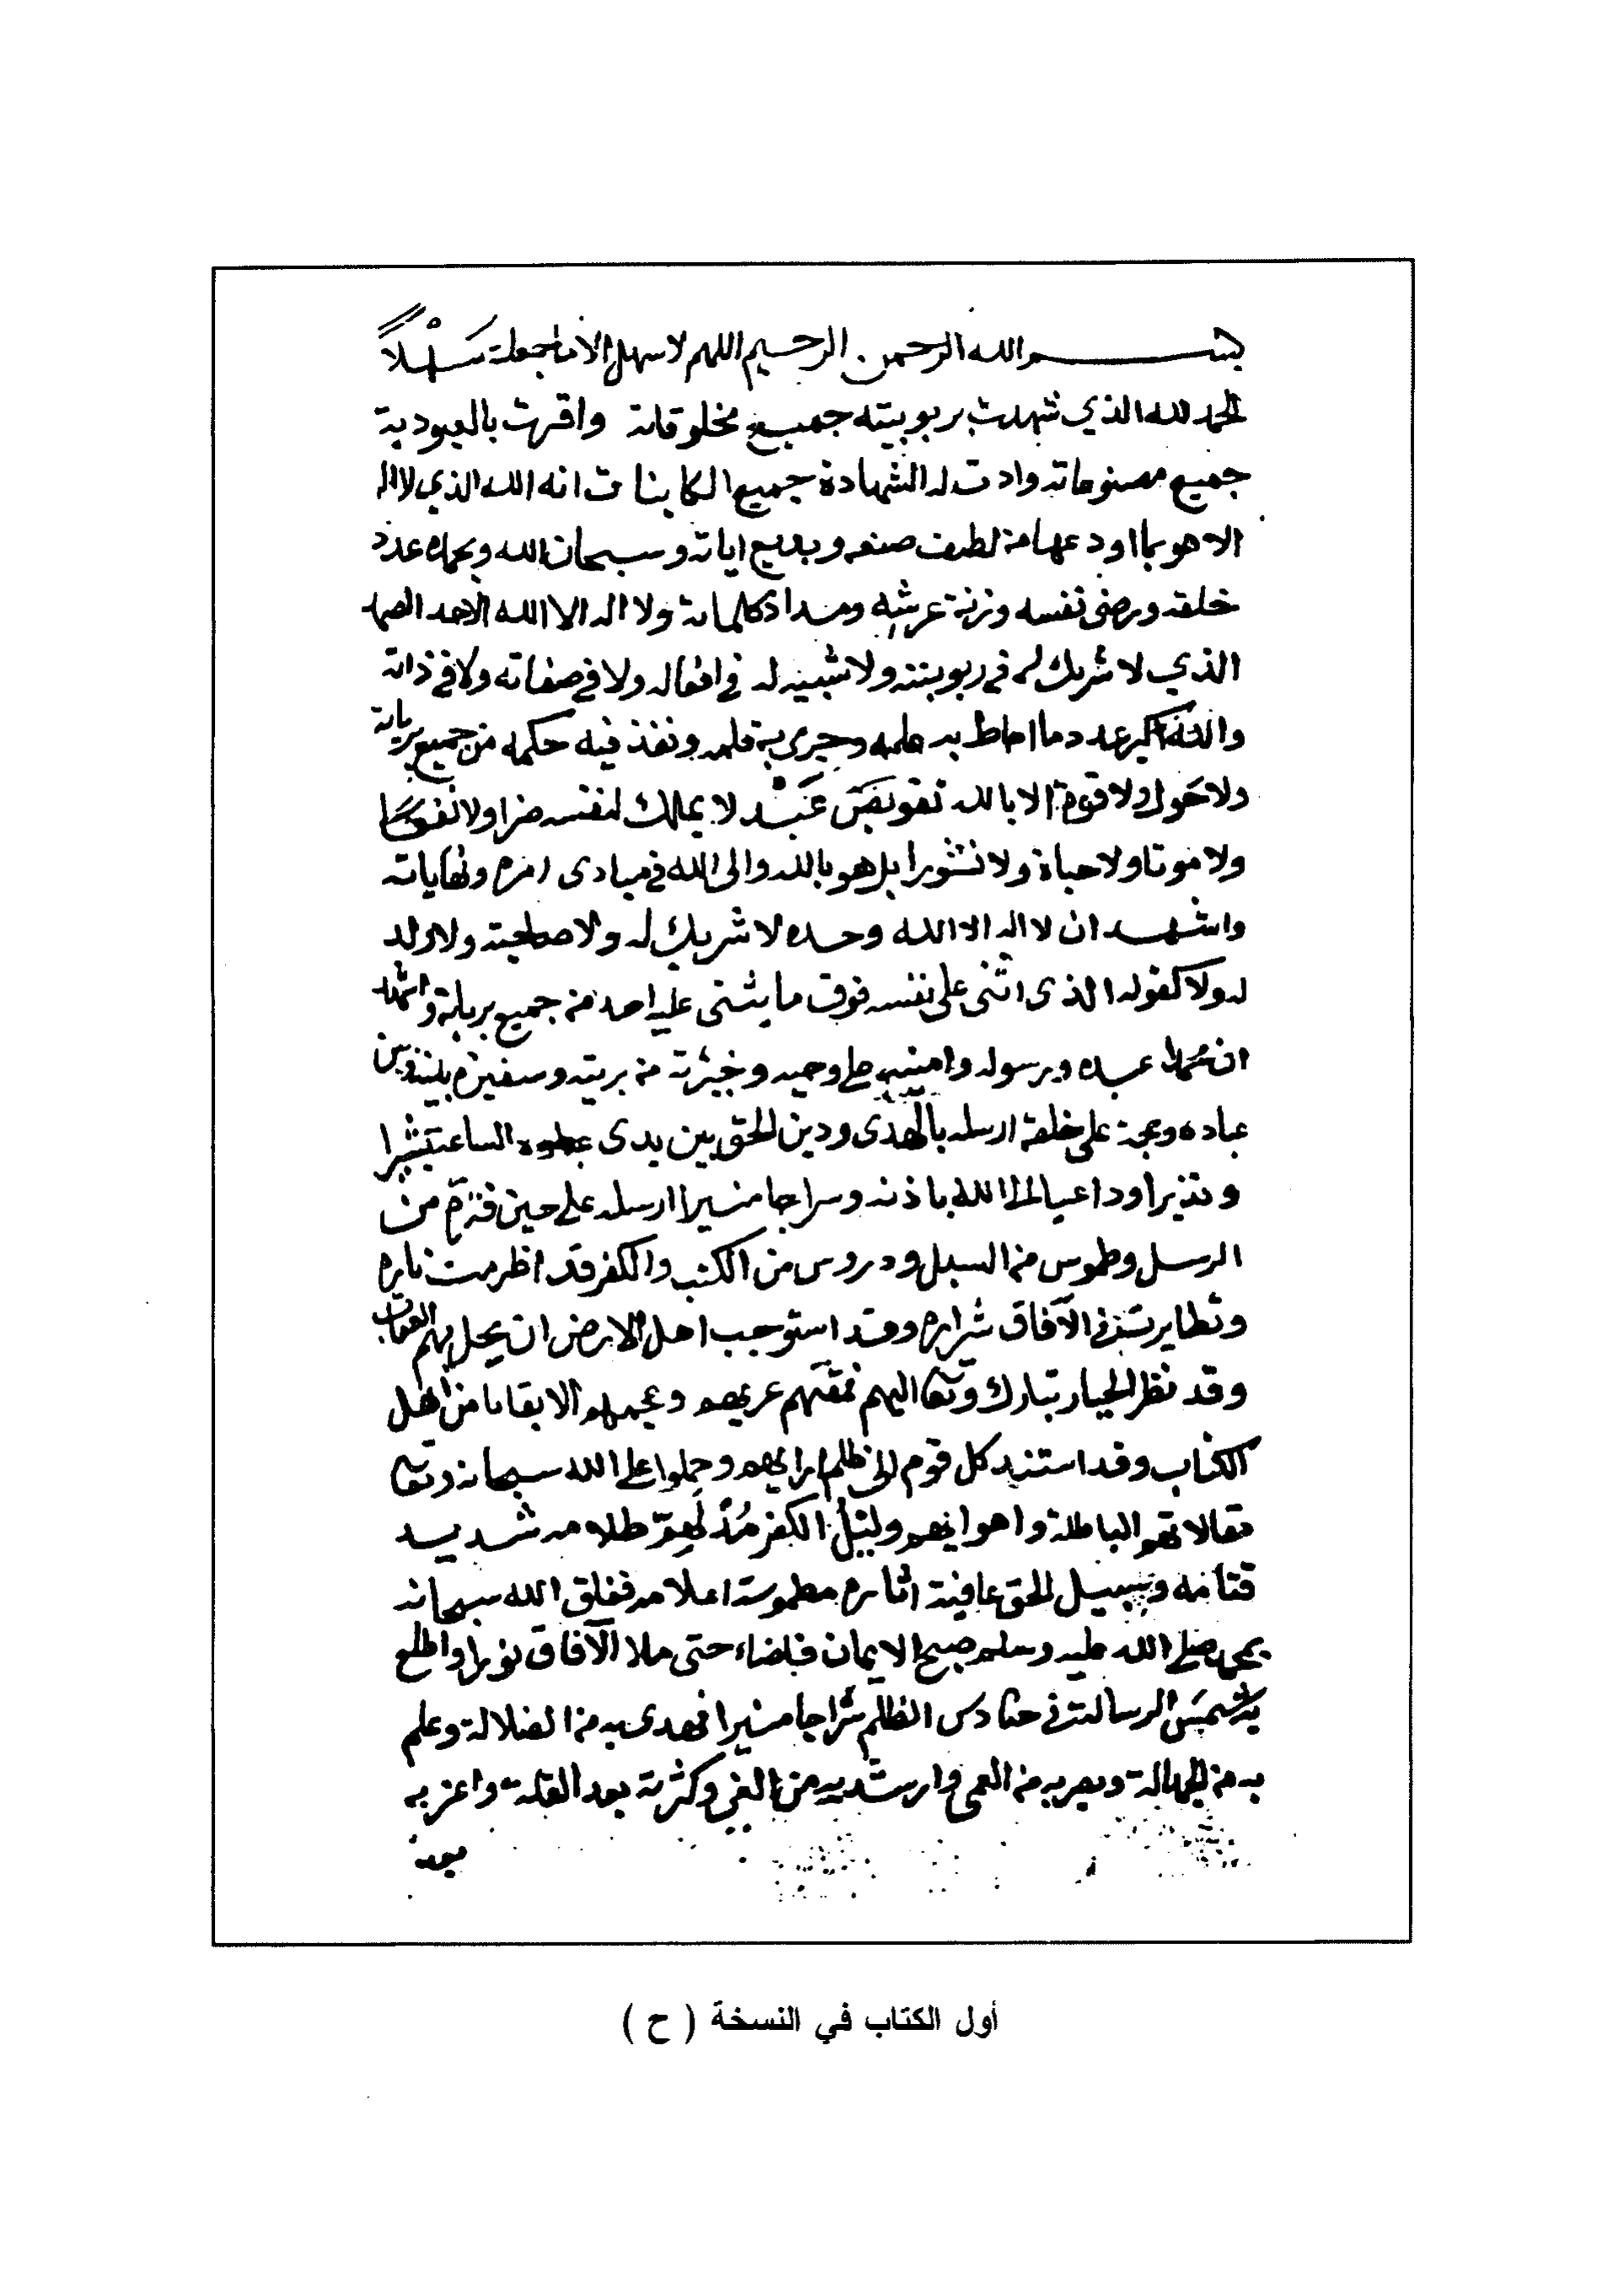 بسم الله الرحمن الرحيم اللهم لا سهل الا ما جعلته سَهْلاً
الحمد لله الذي شهدت بربوبيته جميع مخلوقاته واقرت بالعبودية
جميع مصنوعاته وادت له الشهادة جميع الكاينات انه الله الذي لا اله
الا هو بما اودعها من لطيف صنعه وبديع اياته وسبحان الله وبحمده عدد
خلقه ورضى نفسه وزنة عرشه ومداد كلماته ولا اله الا الله الاحد الصمد
الذي لا شريك له في ربوبيته ولا شبيه له في افعاله ولا في صفاته ولا في ذاته
والله اكبر عدد ما احاط به علمه وجرى به قلمه ونفذ فيه حكمه من جميع برياته
ولا حول ولا قوة الا بالله تفويض عَبْد لا يملك لنفسه ضرا ولا نفعا
ولا موتا ولا حياة ولا نشورا بل هو بالله والى الله في مبادى امره ونهاياته
واشهد ان لا اله الا الله وحده لا شريك له ولا صاحبة ولا ولد
له ولا كفو له الذى اثنى على نفسه فوق ما يثنى عليه احد من جميع برياته واشهد
ان محمدا عبده ورسوله وامينه على وحيه وخيرته من بريته وسفيره بينه وبين
عباده وحجته على خلقه ارسله بالهدى ودين الحق بين يدى الساعة بشيرا
ونذيرا وداعيا الى الله باذنه وسراجا منيرا ارسله على حين فترة من
الرسل وطموس من السبل ودروس من الكتب والكفر قد اظرمت ناره
وتطايرت في الآفاق شراره وقد استوجب اهل الارض ان يحل بهم العقاب
وقد نظر الجبار تبارك وتعا اليهم فمقتهم عربهم وعجمهم الا بقايا من اهل
الكتاب وقد استند كل قوم الى ظلم ارائهم وحملوا على الله سبحانه وتعا
مقالاتهم الباطلة واهوائهم وليل الكفر مُدْلَهِمّ ظلامه شديد
قتامه وسبيل الحق عافية اثاره مطموسة اعلامه ففلق الله سبحانه
بمحمد صلى الله عليه وسلم صبح الايمان فاضاء حتى ملا الآفاق نورا واطلع
به شمس الرسالة في حنادس الظلم سراجا منيرا فهدى به من الضلالة وعلم
به من الجهالة وبصر به من العمى وارشد به من الغي وكثر به بعد القلة واعز به
بعد
أول الكتاب في النسخة ( ح )